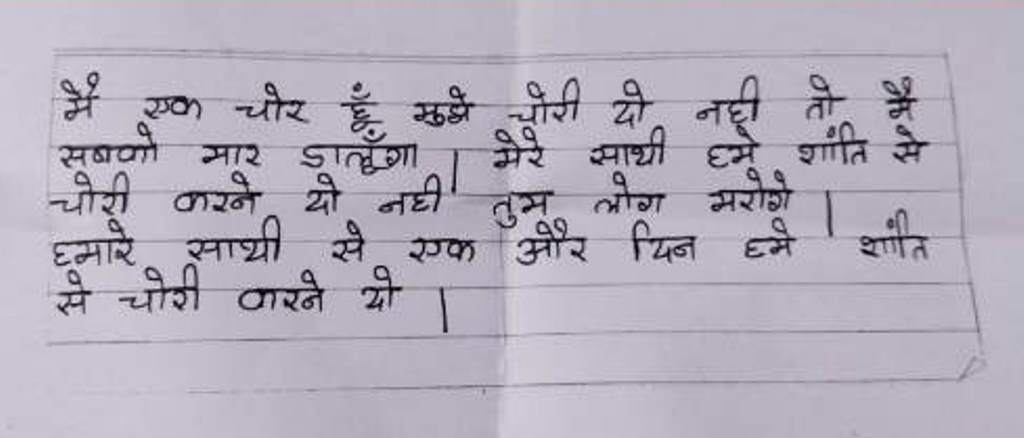 मै एक चोर हूँ मुझे चोरी दो नही तो मै
सबको मार डालूँगा । मेरे साथी हमे शांति से
चोरी करने दो नही तुम लोग मरोगे ।
हमारे साथी से एक और दिन हमे शांति
से चोरी करने दो ।